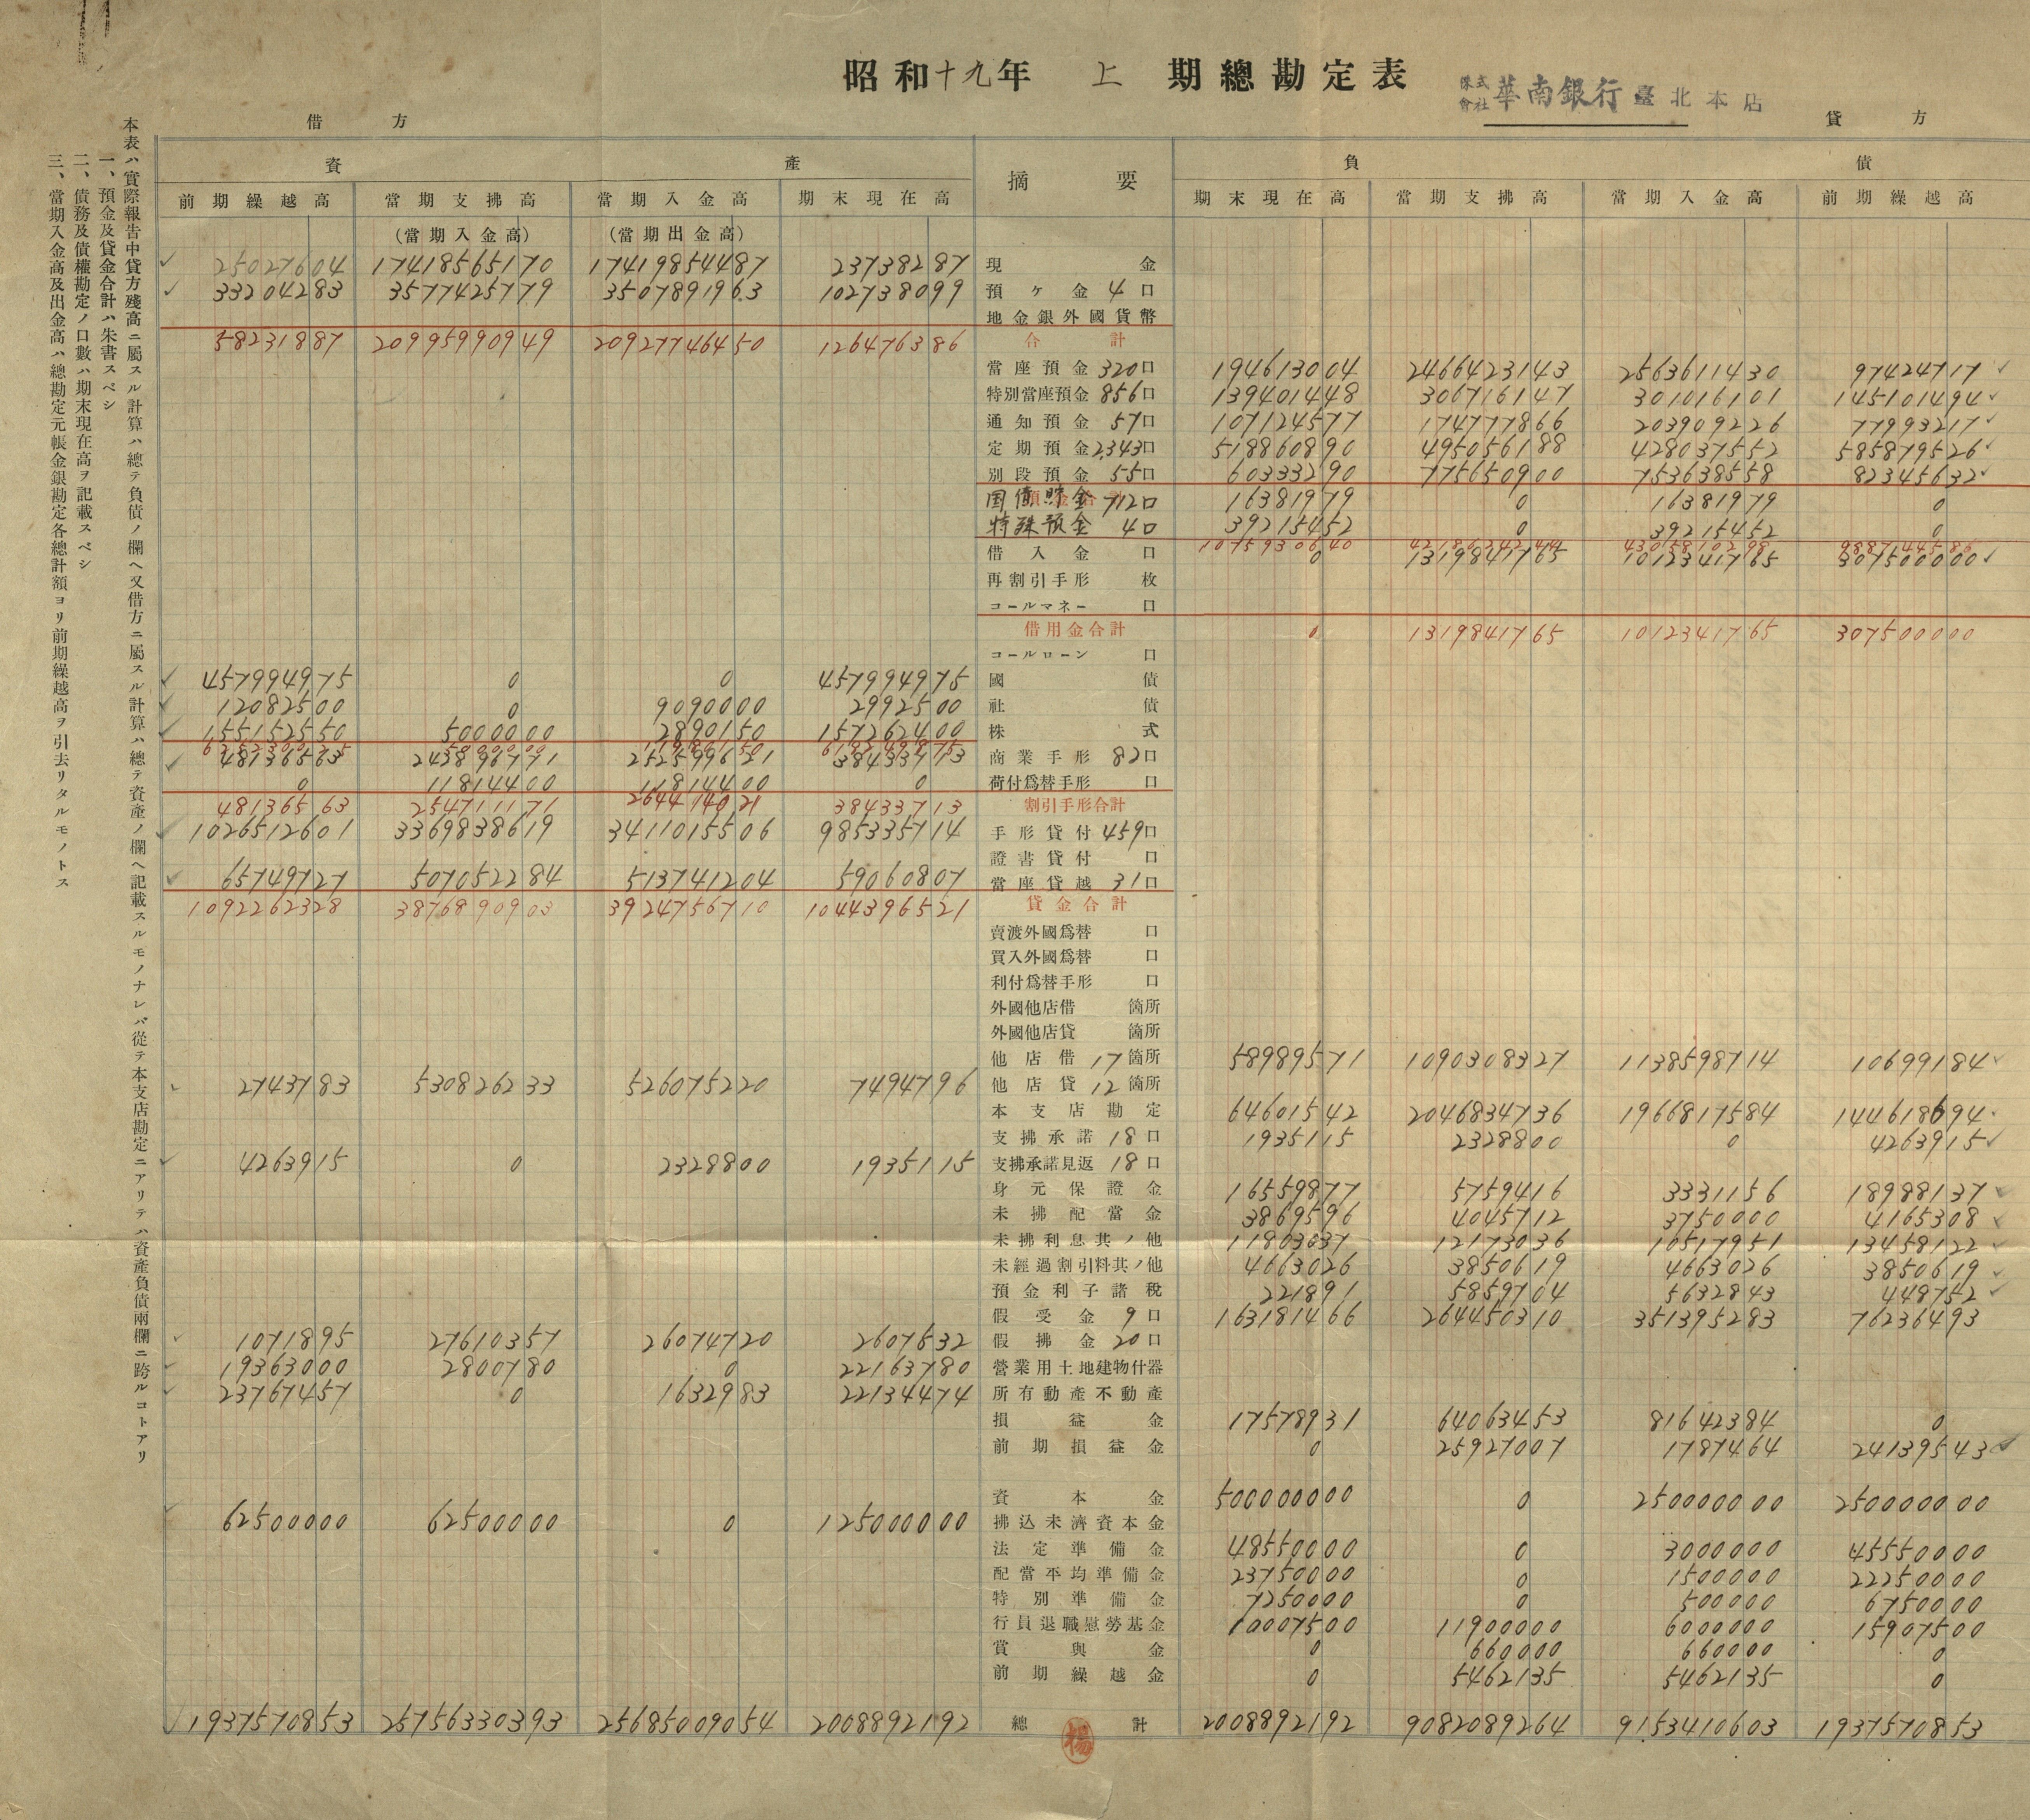 昭和十九年 上 期總勘定表 株式會社 華南銀行 臺北本店
借方 貸方
資產 摘要 負債
前期繰越高 當期支拂高 當期入金高 期末現在高 期末現在高 當期支拂高 當期入金高 前期繰越高
(當期入金高) (當期出金高)
25027604 17418565170 17419854487 23738287 現金
33204283 3577425779 3507891963 102738099 預ケ金 4口
地金銀外國貨幣
58231887 20995990949 20927746450 126476386 合計
當座預金 320口 194613004 2466423143 2563611430 97424717
特別當座預金 856口 139401448 306716147 301016101 145101494
通知預金 57口 107124577 174777866 203909226 77993217
定期預金 2,343口 518860890 495056188 428037552 585879526
別段預金 55口 60333290 775650900 753638558 82345632
国債貯金 712口 16381979 0 16381979 0
特殊預金 4口 39215452 0 39215452 0
1075930640 4218624244 4305810298 988744586
借入金 口 0 1319841765 1012341765 307500000
再割引手形 枚
コールマネー 口
借用金合計 0 1319841765 1012341765 307500000
コールローン 口
457994975 0 0 457994975 國債
12082500 0 9090000 2992500 社債
155152550 5000000 2890150 157262400 株式
48136563 243896771 252599621 38433713 商業手形 82口
0 11814400 11814400 0 荷付爲替手形 口
48136563 254711171 264414021 38433713 割引手形合計
1026512601 3369838619 3411015506 985335714 手形貸付 459口
證書貸付 口
65749727 507052284 513741204 59060807 當座貸越 31口
1092262328 3876890903 3924756710 1044396521 貸金合計
賣渡外國爲替 口
買入外國爲替 口
利付爲替手形 口
外國他店借 箇所
外國他店貸 箇所
他店借 17箇所 58989571 1090308327 1138598714 10699184
2743783 530826233 526075220 7494796 他店貸 12箇所
本支店勘定 64601542 2046834736 1966817584 144618694
支拂承諾 18口 1935115 2328800 0 4263915
4263915 0 2328800 1935115 支拂承諾見返 18口
身元保證金 16559877 5759416 3331156 18988137
未拂配當金 3869596 4045712 3750000 4165308
未拂利息其ノ他 11803037 12173036 10517951 13458122
未經過割引料其ノ他 4663026 3850619 4663026 3850619
預金利子諸稅 221891 5859704 5632843 448752
假受金 9口 163181466 264450310 351395283 76236493
1071895 27610357 26074720 2607532 假拂金 20口
19363000 2800780 0 22163780 營業用土地建物什器
23767457 0 1632983 22134474 所有動產不動產
損益金 17578931 64063453 81642384 0
前期損益金 0 25927007 1787464 24139543
資本金 500000000 0 250000000 250000000
62500000 62500000 0 125000000 拂込未濟資本金
法定準備金 48550000 0 3000000 45550000
配當平均準備金 23750000 0 1500000 22250000
特別準備金 7250000 0 500000 6750000
行員退職慰勞基金 10007500 11900000 6000000 15907500
賞與金 0 660000 660000 0
前期繰越金 0 5462135 5462135 0
1937570853 25756330393 25685009054 2008892192 總計 2008892192 9082089264 9153410603 1937570853
楊
本表ハ實際報告中貸方殘高ニ屬スル計算ハ總テ負債ノ欄ヘ又借方ニ屬スル計算ハ總テ資產ノ欄ヘ記載スルモノナレバ從テ本支店勘定ニアリテハ資產負債兩欄ニ跨ルコトアリ
一、預金及貸金合計ハ朱書スベシ
二、債務及債權勘定ノ口數ハ期末現在高ヲ記載スベシ
三、當期入金高及出金高ハ總勘定元帳金銀勘定各總計額ヨリ前期繰越高ヲ引去リタルモノトス